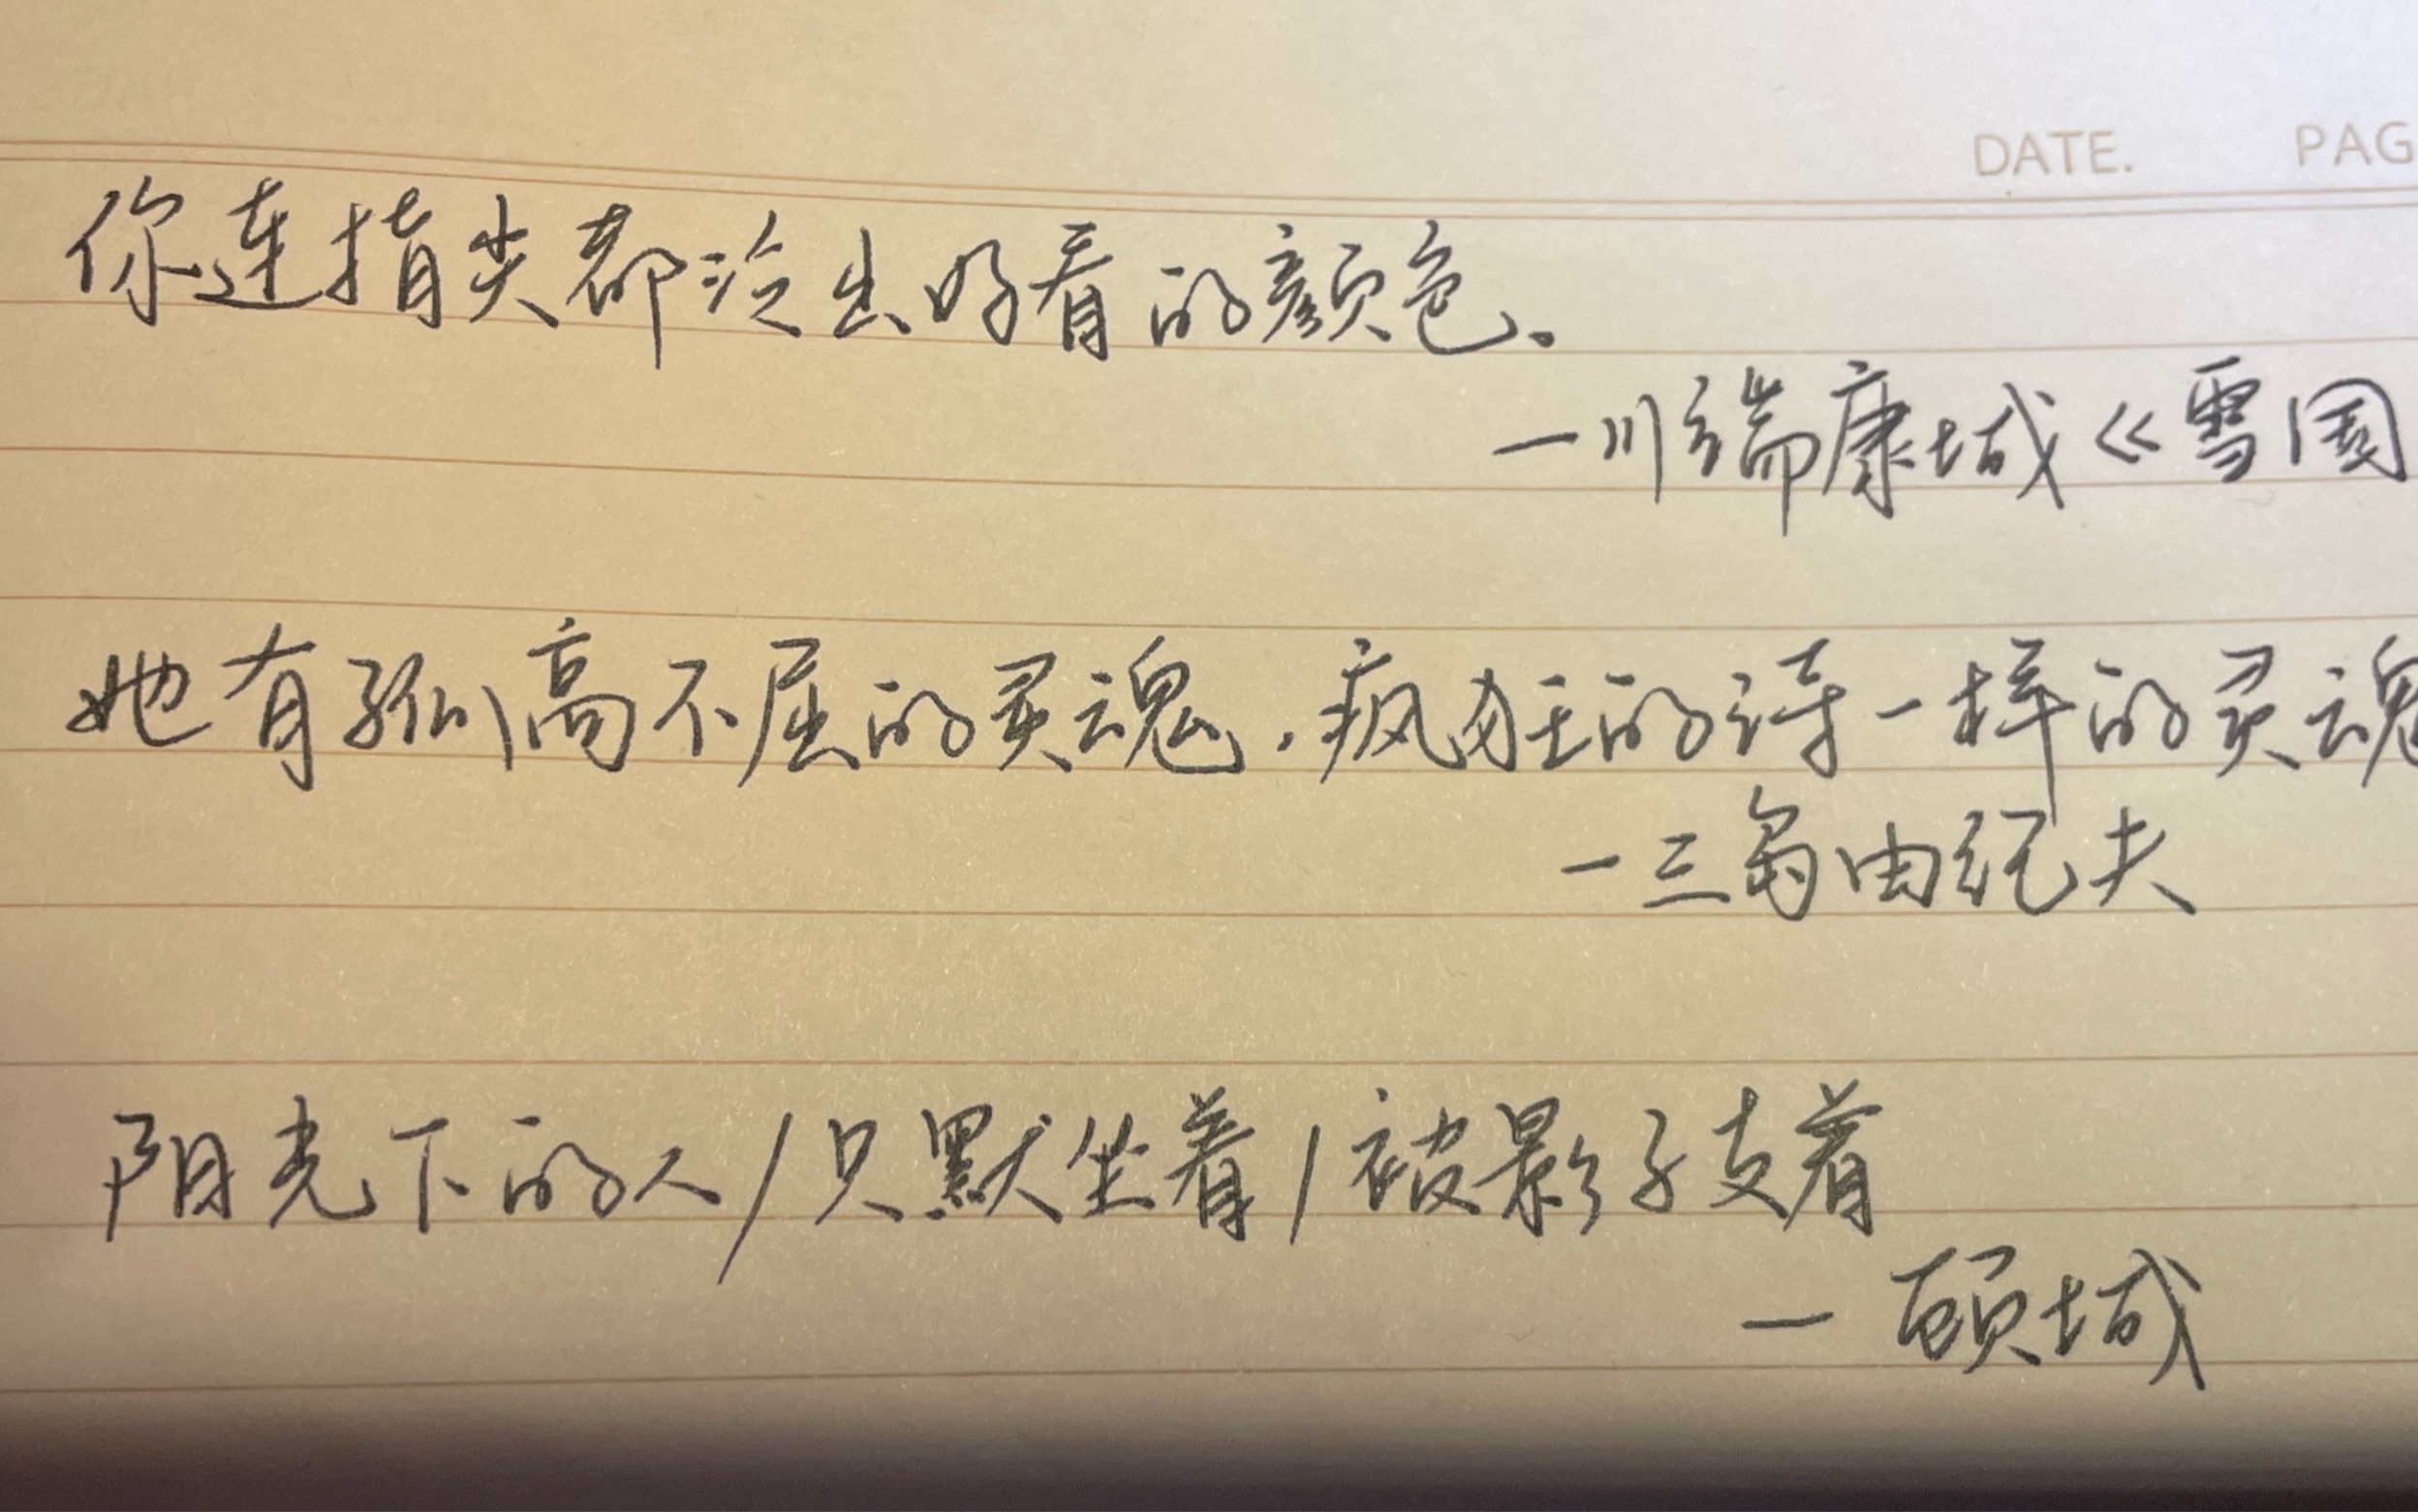 DATE. PAG
你连指尖都泛出好看的颜色.
一川端康城《雪国
她有孤高不屈的灵魂.疯狂的诗一样的灵魂
一三岛由纪夫
阳光下的人/只默坐着/被影子支着
一顾城